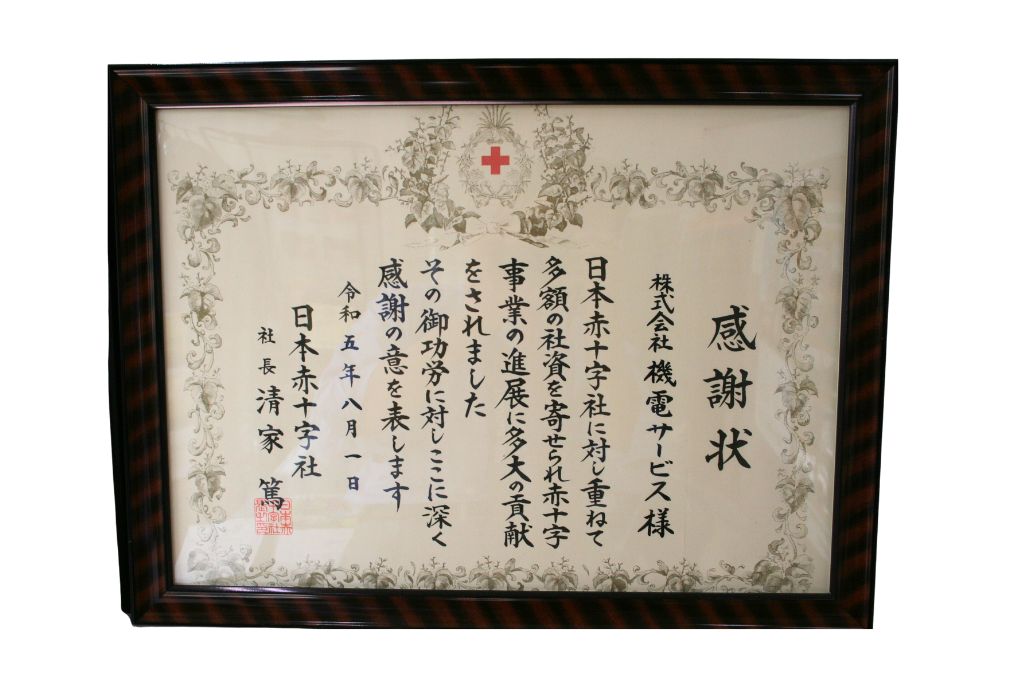 感謝状
株式会社 機電サービス様
日本赤十字社に対し重ねて
多額の社資を寄せられ赤十字
事業の進展に多大の貢献
をされました
その御功労に対しここに深く
感謝の意を表します
令和五年八月一日
日本赤十字社
社長 清家 篤